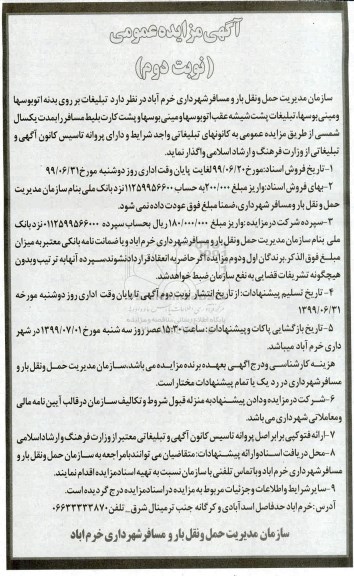 آگهی مزایده عمومی
(نوبت دوم)
سازمان مدیریت حمل ونقل بار و مسافر شهرداری خرم آباد در نظر دارد تبلیغات بر روی بدنه اتوبوسها
ومینی بوسها، تبلیغات پشت شیشه عقب اتوبوسها ومینی بوسها و پشت کارت بلیط مسافر را بمدت یکسال
شمسی از طریق مزایده عمومی به کانونهای تبلیغاتی واجد شرایط و دارای پروانه تاسیس کانون آگهی و
تبلیغاتی از وزارت فرهنگ و ارشاد اسلامی واگذار نماید.
۱-تاریخ فروش اسناد:مورخ ۹۹/۰۶/۲۰ لغایت پایان وقت اداری روز دوشنبه مورخ ۹۹/۰۶/۳۱
۲-بهای فروش اسناد:واریز مبلغ ۲۰۰/۰۰۰ به حساب ۰۱۱۲۵۹۹۵۶۶۰۰۰ نزد بانک ملی بنام سازمان مدیریت
حمل ونقل بار و مسافر شهرداری،ضمنا مبلغ فوق عودت داده نمی شود.
۳-سپرده شرکت در مزایده:واریز مبلغ ۱۸۰/۰۰۰/۰۰۰ ریال بحساب سپرده ۰۱۱۲۵۹۹۵۶۶۰۰۰ نزد بانک
ملی بنام سازمان مدیریت حمل ونقل بار و مسافر شهرداری خرم آباد و یا ضمانت نامه بانکی معتبر به میزان
مبلغ فوق الذکر.برندگان اول ودوم مزایده اگر حاضر به انعقاد قرارداد نشوند سپرده آنها به ترتیب وبدون
هیچگونه تشریفات قضایی به نفع سازمان ضبط خواهد شد.
۴- تاریخ تسلیم پیشنهادات:از تاریخ انتشار نوبت دوم آگهی تا پایان وقت اداری روز دوشنبه مورخه
۱۳۹۹/۰۶/۳۱
۵- تاریخ بازگشایی پاکات و پیشنهادات: ساعت ۱۵:۳۰ عصر روز سه شنبه مورخ ۱۳۹۹/۰۷/۰۱ در شهر
داری خرم آباد میباشد.
هزینه کارشناسی و درج آگهی بعهده برنده مزایده می باشد،سازمان مدیریت حمل ونقل بار و
مسافر شهرداری در رد یک یا تمام پیشنهادات مختار است.
۶-شرکت در مزایده و دادن پیشنهاد به منزله قبول شروط و تکالیف سازمان در قالب آیین نامه مالی
ومعاملاتی شهرداری می باشد.
۷-ارائه فتوکپی برابر اصل پروانه تاسیس کانون آگهی و تبلیغاتی معتبر از وزارت فرهنگ و ارشاد اسلامی
۸-محل دریافت اسناد و ارائه پیشنهادات:متقاضیان می توانند با مراجعه به سازمان حمل ونقل بار و
مسافر شهرداری خرم آباد و یا تماس تلفنی با سازمان نسبت به تهیه اسناد مزایده اقدام نمایند.
۹-سایر شرایط واطلاعات و جزئیات مربوط به مزایده در اسناد مزایده درج گردیده است.
آدرس:خرم آباد حدفاصل اسدآبادی و کرگانه جنب ترمینال شرق _ تلفن ۰۶۶۳۳۳۳۳۸۷۰
سازمان مدیریت حمل ونقل بار و مسافر شهرداری خرم آباد